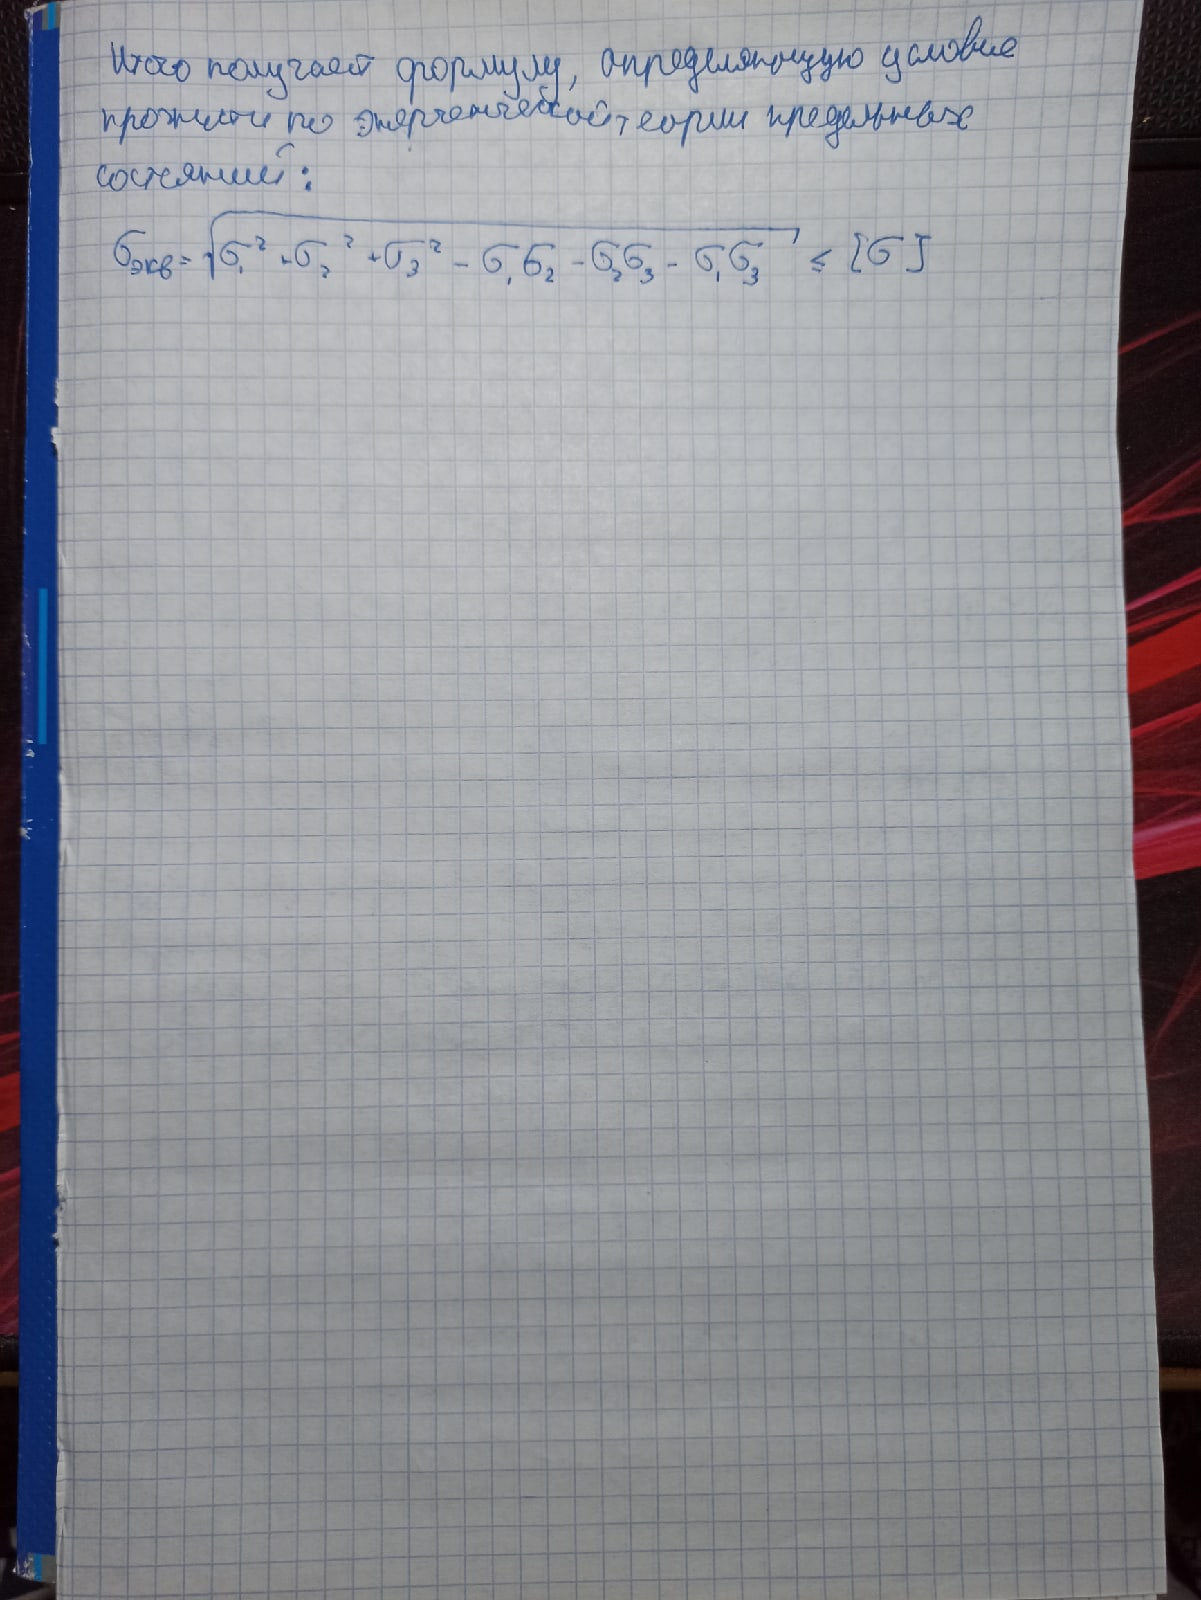 Итого получает формулу, определяющую условие
прочности по энергетической теории предельных
состояний:
σэкв = √(σ₁² + σ₂² + σ₃² - σ₁σ₂ - σ₂σ₃ - σ₁σ₃) ≤ [σ]